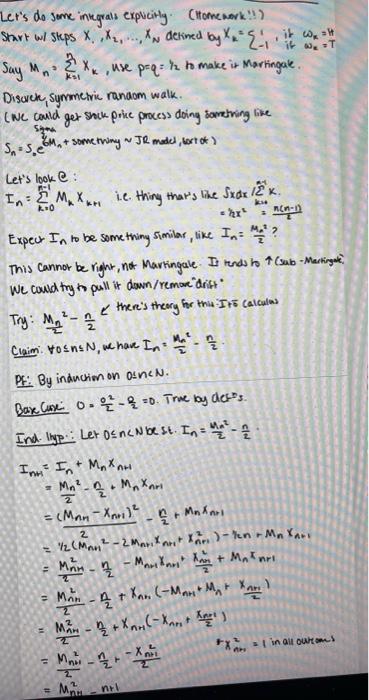 Let's do some integrals explicitly. (Homework!!)
Start w/ steps X₁, X₂, ..., X_N defined by X_k = { 1, if ω_k = H
-1 if ω_k = T
Say M_n = Σ_{k=1}^{n} X_k, use p=q=1/2 to make it Martingale.
Discrete, symmetric random walk.
(We could get stock price process doing something like
sigma
S_n = S_0 e^{σM_n + something} ~ JR model, sort of)
Let's look @:
I_n = Σ_{k=0}^{n-1} M_k X_{k+1} i.e. thing that's like ∫xdx / Σ_{k=0}^{n-1} k.
= ½x² = n(n-1)/2
Expect I_n to be something similar, like I_n = M_n²/2 ?
This cannot be right, not Martingale. It tends to ↑ (sub-Martingale).
We could try to pull it down/remove "drift"
Try: M_n²/2 - n/2 ← there's theory for this: Itō Calculus
Claim: ∀ 0≤n≤N, we have I_n = M_n²/2 - n/2.
PF: By induction on 0≤n<N.
Base Case: 0 = 0²/2 - 0/2 = 0. True by def^ns.
Ind. Hyp.: Let 0≤n<N be s.t. I_n = M_n²/2 - n/2.
I_{n+1} = I_n + M_n X_{n+1}
= M_n²/2 - n/2 + M_n X_{n+1}
= (M_{n+1} - X_{n+1})²/2 - n/2 + M_n X_{n+1}
= 1/2 (M_{n+1}² - 2M_{n+1}X_{n+1} + X_{n+1}²) - ½n + M_n X_{n+1}
= M_{n+1}²/2 - n/2 - M_{n+1}X_{n+1} + X_{n+1}²/2 + M_n X_{n+1}
= M_{n+1}²/2 - n/2 + X_{n+1} (-M_{n+1} + M_n + X_{n+1}/2)
= M_{n+1}²/2 - n/2 + X_{n+1} (-X_{n+1} + X_{n+1}/2)
= M_{n+1}²/2 - n/2 + -X_{n+1}²/2 * X_{n+1}² = 1 in all outcomes
= M_{n+1}²/2 - n+1